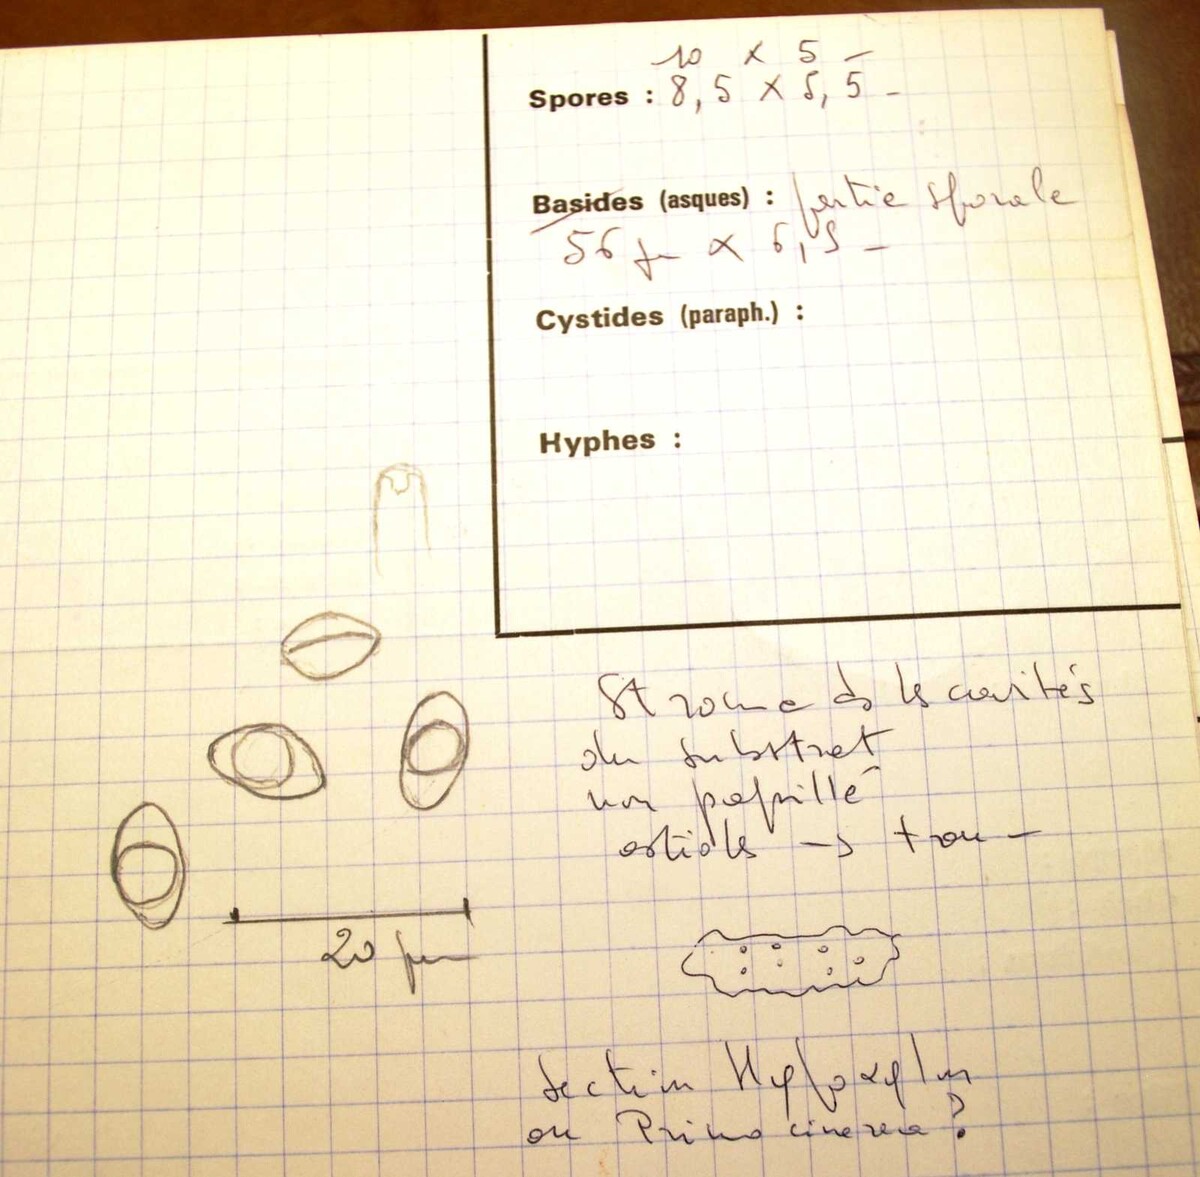 10 x 5 -
Spores : 8,5 x 5,5 -
Basides (asques) : partie sporale
56 µm x 6,5 -
Cystides (paraph.) :
Hyphes :
Stroma ds les cavités
du substrat
non papillé
ostiole -> trou -
20 µm
Section Hypoxylon
ou Primocinerea ?